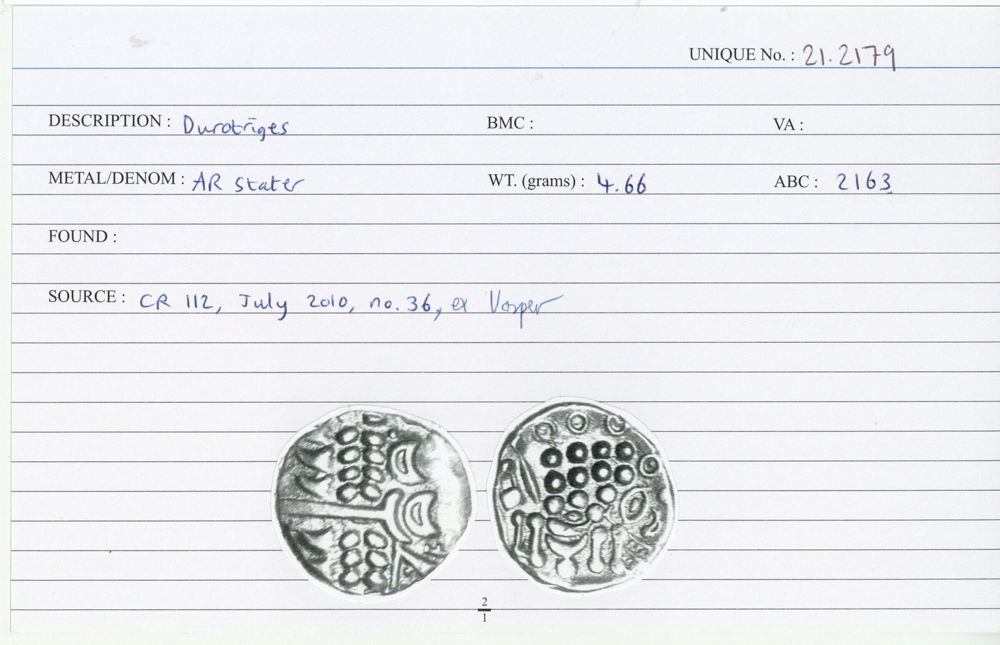 UNIQUE No. : 21.2179
DESCRIPTION : Durotriges BMC : VA :
METAL/DENOM : AR stater WT. (grams) : 4.66 ABC : 2163
FOUND :
SOURCE : CR 112, July 2010, no. 36, ex Vosper
2
1